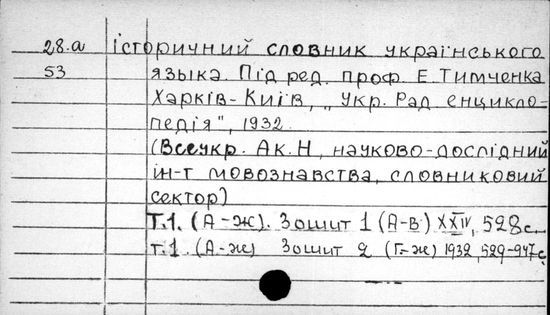 28.а історичний словник українського
53 языка. Під ред. проф. Е. Тимченка
Харків-Київ, „Укр. Рад. енцикло-
педія", 1932.
(Всеукр. Ак. Н, науково-дослідний
ін-т мовознавства, словниковий
сектор)
Т.1. (А-ж). Зошит 1 (А-в) XXIV, 528 с.
т.1. (А-ж) Зошит 2 (Г-ж) 1932, 529-947 с.